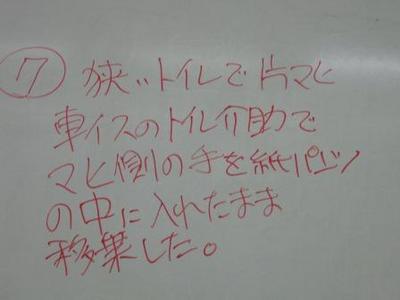 ⑦ 狭いトイレで片マヒ
車イスのトイレ介助で
マヒ側の手を紙パンツ
の中に入れたまま
移乗した。